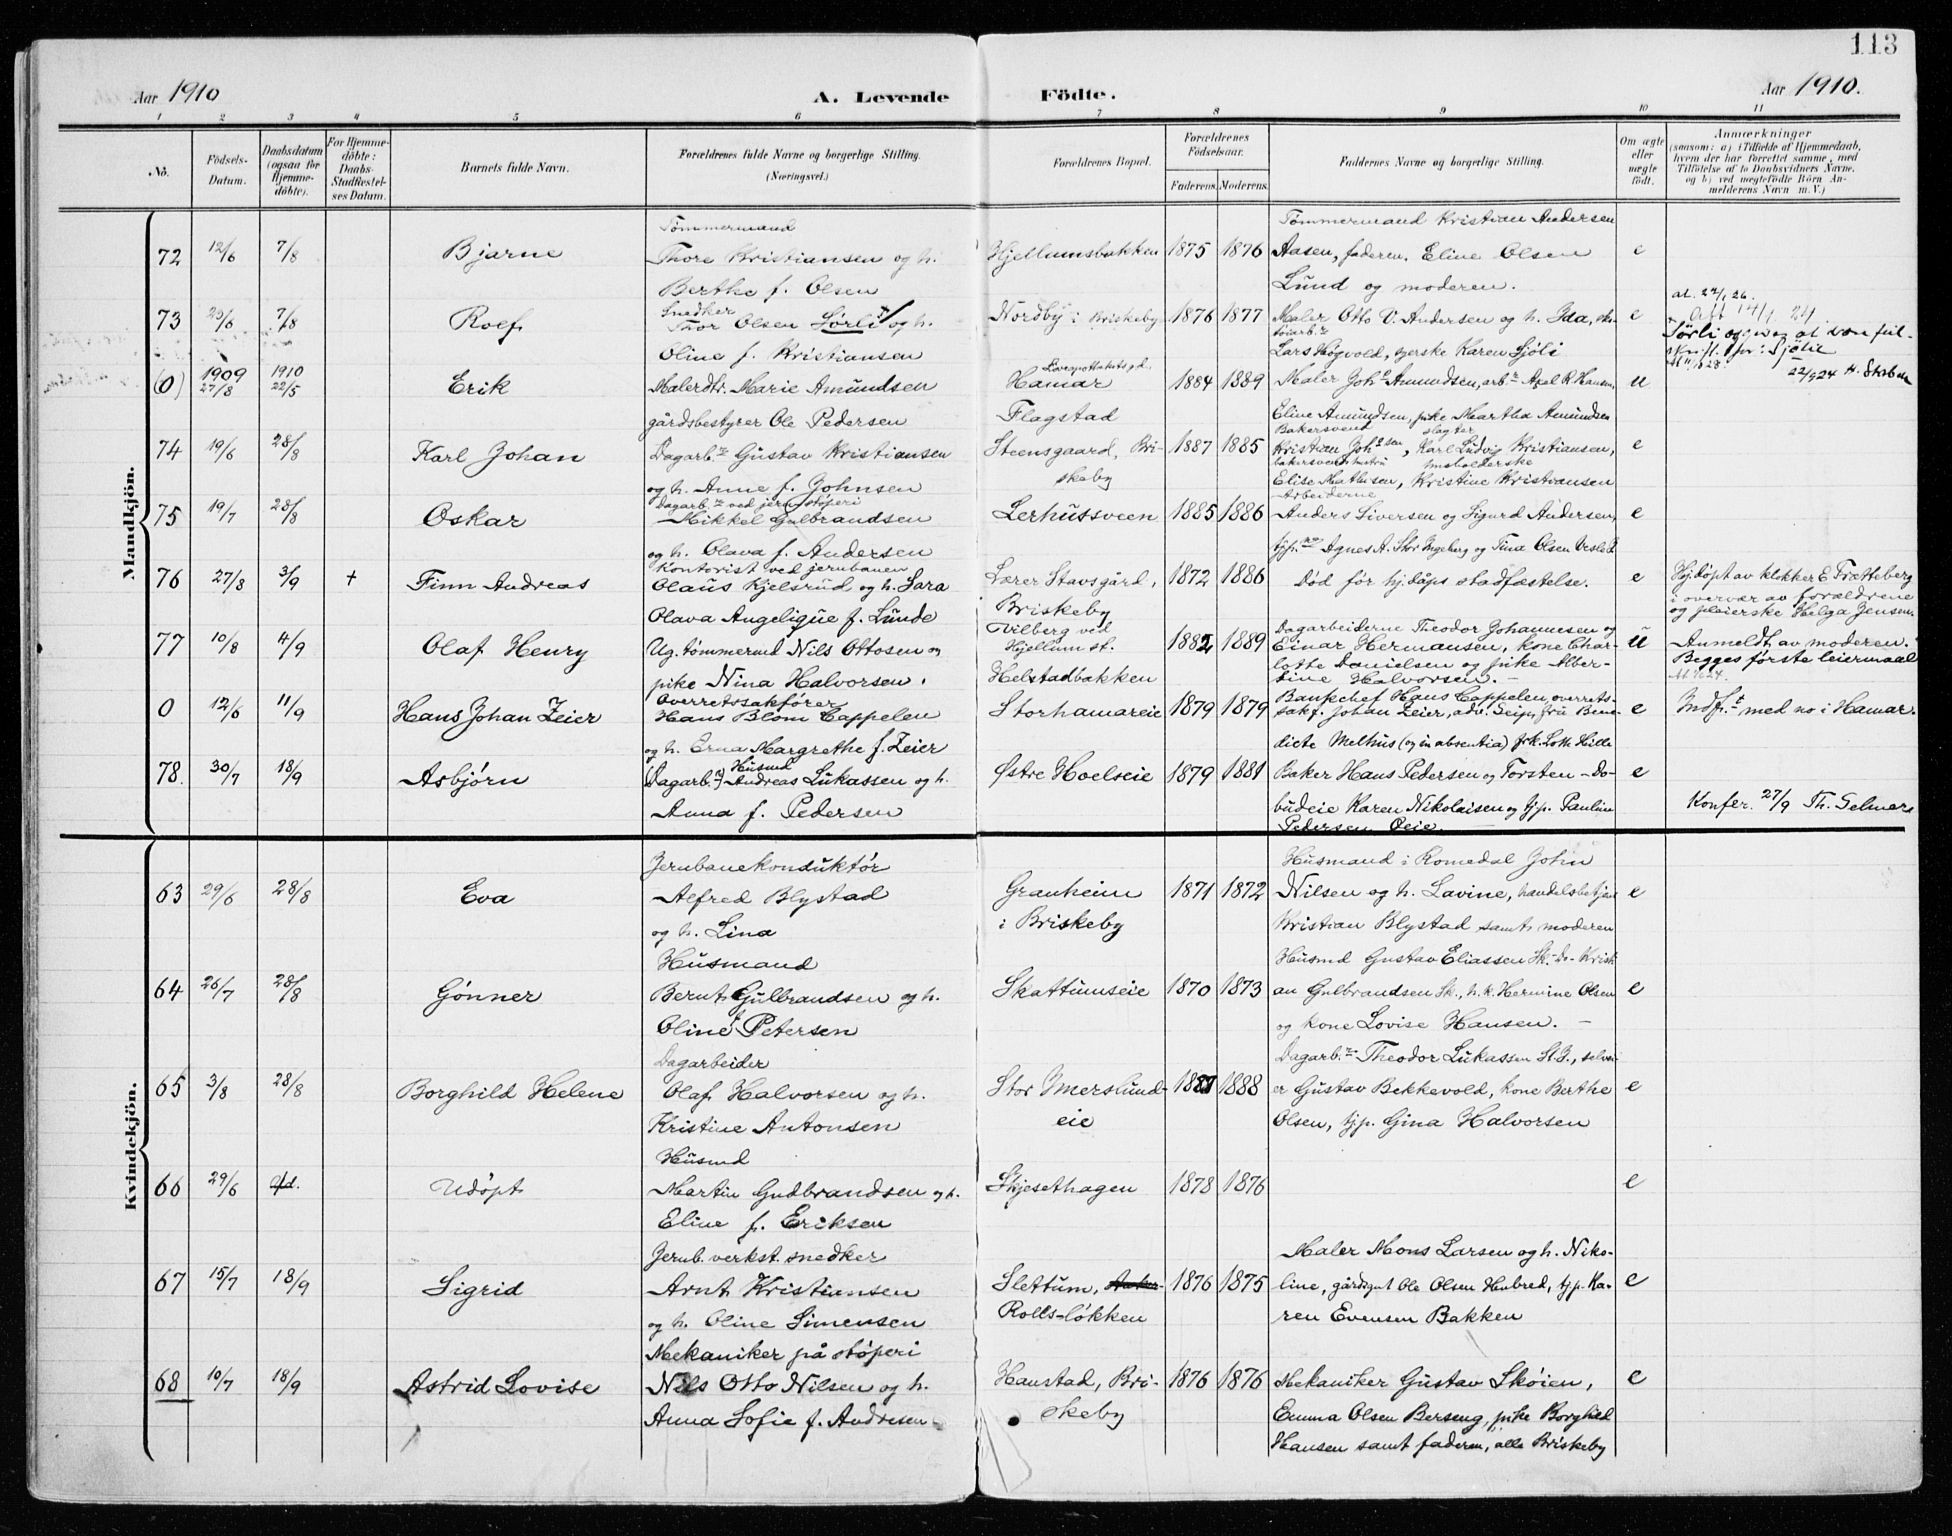 113
Aar 1910
A. Levende Födte.
Aar 1910.
1 2 3 4 5 6 7 8 9 10 11
No.
Födsels-Datum.
Daabsdatum (ogsaa for Hjemme-döbte).
For Hjemme-döbte: Daabs-Stadfæstel-ses Datum.
Barnets fulde Navn.
Forældrenes fulde Navne og borgerlige Stilling. (Næringsvei.)
Forældrenes Bopæl.
Forældrenes Födselsaar.
Faderens. Moderens.
Faddernes Navne og borgerlige Stilling.
Om ægte eller uægte födt.
Anmærkninger
(saasom: a) i Tilfælde af Hjemmedaab, hvem der har forrettet samme, med Tilföielse af to Daabsvidners Navne, og b) ved uægtefödte Börn An-melderens Navn m. V.)
Mandkjön.
Tømmermand Tømmermand Kristian Andersen
72 12/6 7/8 Bjarne Thore Kristiansen og h. Hjellumsbakken 1875 1876 Aasen, faderen, Eline Olsen e
Berthe f. Olsen Lund og moderen.
Snedker
73 7/8 Rolf Thor Olsen Sörli og h. Nordby i Briskeby 1876 1877 Maler Otto V. Andersen og h. Ida, e
Oline f. Kristiansen Lars Høgvold, syerske Karen Sjöli
Sörli
(0) 1909 27/8 1910 22/5 Erik Malerdtr. Marie Amundsen Hamar 1884 1889 Maler Amundsen, Axel R. Hansen, u
22/9 24
gårdsbestyrer Ole Pedersen Flagstad Eline Amundsen, pike Martha Amundsen
Bakersvend slagter
74 19/6 28/8 Karl Johan Dagarb. Gustav Kristiansen Steensgaard, Bri- 1887 1885 Kristian Karl Ludvig Kristiansen, e
og h. Anne f. Johnsen skeby Elise Mathisen, Kristine Kristiansen
Dagarb. ved jernstøperi Arbeiderne
75 19/7 28/8 Oskar Mikkel Gulbrandsen Lerhussveen 1885 1886 Anders Siversen og Sigurd Andersen, e
og h. Olava f. Andersen tjp. Agnes A. Stor Ingeberg og Tina Olsen
Kontorist ved jernbanen
76 27/8 3/9 + Finn Andreas Olaus Kjelsrud og h. Sara Lærer Stavsgård, 1872 1886 Død før hj.dåps stadfæstelse. e Hj.døpt av klokker E. Frætteberg
Olava Angelique f. Lunde Briskeby i overvær av forældrene
og pleierske Helga Jensen.
Vilberg ved Dagarbeiderne Theodor Johannesen og
77 10/8 4/9 Olaf Henry Ug. tømmermd Nils Ottosen og Hjellum st. 1882 1889 Einar Hermansen, kone Char- u Anmeldt av moderen.
pike Nina Halvorsen. Helstadbakken lotte Danielsen og pike Alber- Begges første leiermaal
tine Halvorsen.
Overretssakfører Bankchef Hans Cappelen, overrets-
0 12/6 11/9 Hans Johan Zeier Hans Blom Cappelen Storhamareie 1879 1879 sakf. Johan Zeier, adv. Seip, fru Bene- e Indf. med no i Hamar.
og h. Erna Margrethe f. Zeier dicte Melhus (og in absentia) frk. Lotte Hille
Husmd
78. 30/7 18/9 Asbjörn (Dagarb.) Andreas Lukassen og h. Østre Hoelseie 1879 1881 Baker Hans Pedersen og Torsten -do- e
Anna f. Pedersen budeie Karen Nikolaisen og tjp. Pauline Konfer. 27/9 Th. Selmer
Pedersen Oeie.
Kvindekjön.
Jernbanekonduktør Husmand i Romedal John
63 29/6 28/8 Eva Alfred Blystad Granheim 1871 1872 Nilsen og h. Lavine, handelsbetjen e
og h. Lina i Briskeby Kristian Blystad samt moderen
Husmand Husmd Gustav Eliassen Sk. -do- Kristi
64 26/7 28/8 Gönner Bernt Gulbrandsen og h. Skattumseie 1870 1873 an Gulbrandsen Sk., h. k. Hermine Olsen e
Oline f. Petersen og kone Lovise Hansen.
Dagarbeider Dagarb. Theodor Lukassen St. I., selvei
65 3/8 28/8 Borghild Helene Olaf Halvorsen og h. Stor Imerslund- 1888 er Gustav Bekkevold, kone Berthe e
Kristine Antonsen eie Olsen, tjp. Gina Halvorsen
Husmd
66 29/6 Udöpt Martin Gudbrandsen og h. Skjesethagen 1878 1876 e
Eline f. Eriksen
Jernb. verkst. snedker Maler Mons Larsen og h. Niko-
67 15/7 18/9 Sigrid Arnt Kristiansen Slettum, 1876 1875 line, gårdsgut Ole Olsen Hubred, tjp. Ka- e
og h. Oline Simensen Rolls-løkken ren Evensen Bakken
Mekaniker på støperi
68 10/7 18/9 Astrid Lovise Nils Otto Nilsen og h. Hanstad, Bri- 1876 1876 Mekaniker Gustav Skøien, e
Anna Sofie f. Andresen skeby Emma Olsen Berseng, pike Borghild
Hansen samt faderen, alle Briskeby